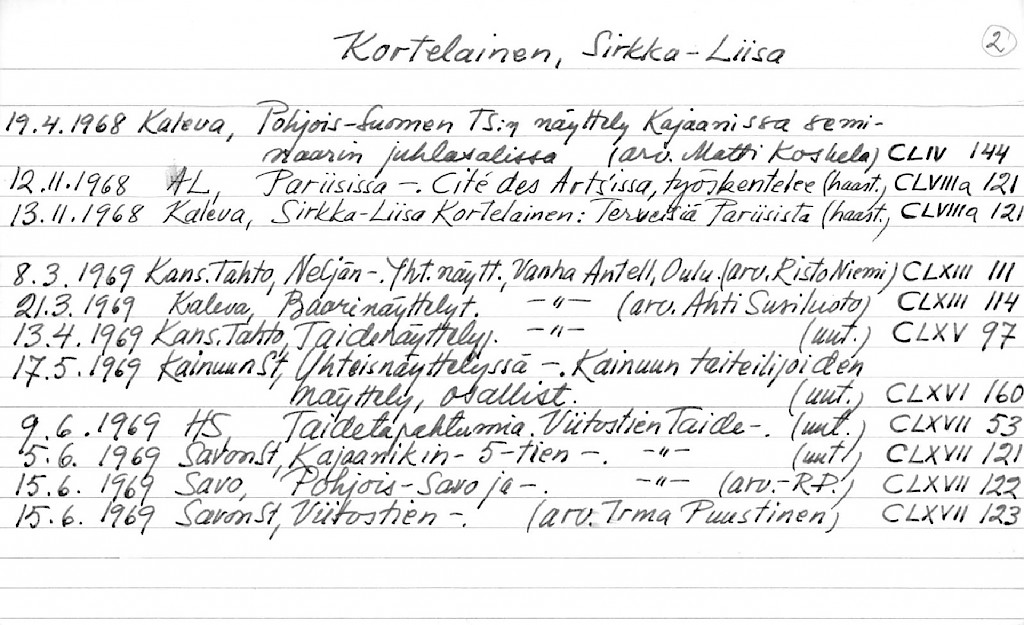 Kortelainen, Sirkka-Liisa 2
19.4.1968 Kaleva, Pohjois-Suomen TS:n näyttely Kajaanissa semi-
naarin juhlasalissa (arv. Matti Koskela) CLIV 144
12.11.1968 AL, Pariisissa -. Cité des Arts'issa, työskentelee (haast.) CLVIIIa 121
13.11.1968 Kaleva, Sirkka-Liisa Kortelainen: Terveisiä Pariisista (haast.) CLVIIIa 121
8.3.1969 Kans.Tahto, Neljän-. Yht.näytt., Vanha Antell, Oulu. (arv. Risto Niemi) CLXIII 111
21.3.1969 Kaleva, Baarinäyttelyt. -"- (arv. Ahti Susiluoto) CLXIII 114
13.4.1969 Kans.Tahto, Taidenäyttely. -"- (uut.) CLXV 97
17.5.1969 KainuunSt, Yhteisnäyttelyssä -. Kainuun taiteilijoiden
näyttely, osallist. (uut.) CLXVI 160
9.6.1969 HS, Taidetapahtumia. Viitostien Taide-. (uut.) CLXVII 53
5.6.1969 SavonSt, Kajaanikin- 5-tien -. -"- (uut.) CLXVII 121
15.6.1969 Savo, Pohjois-Savo ja -. -"- (arv.-R.P.) CLXVII 122
15.6.1969 SavonSt, Viitostien -. (arv. Irma Puustinen) CLXVII 123